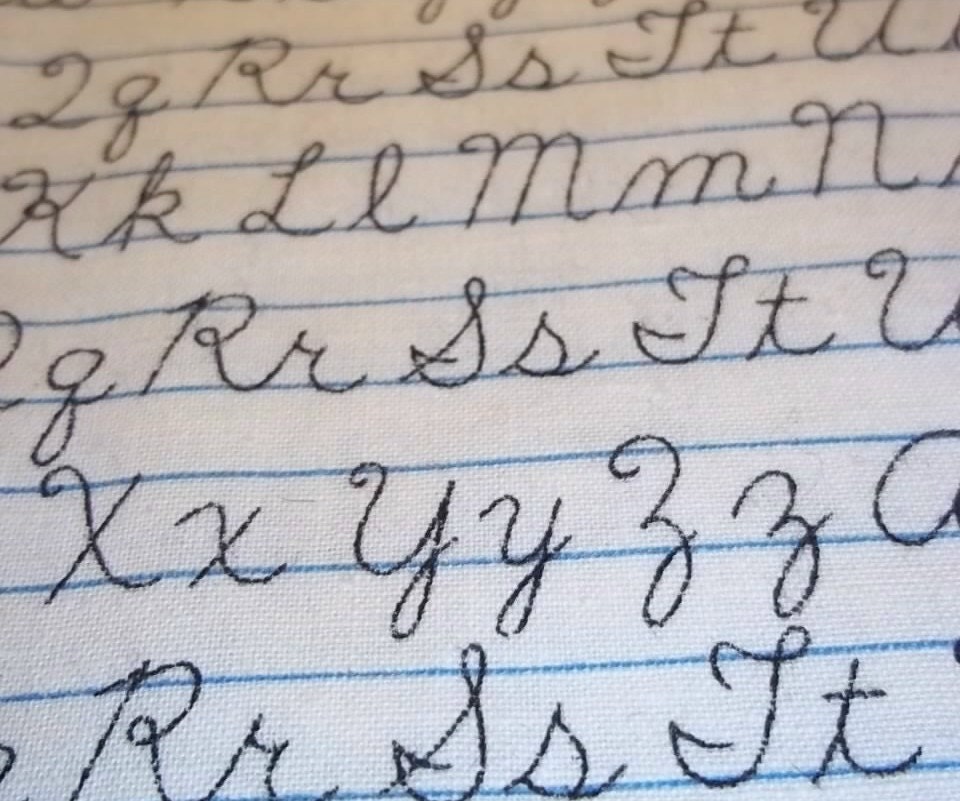 Qq Rr Ss Tt U
Kk Ll Mm N
q Rr Ss Tt U
Xx Yy Zz
Rr Ss Tt